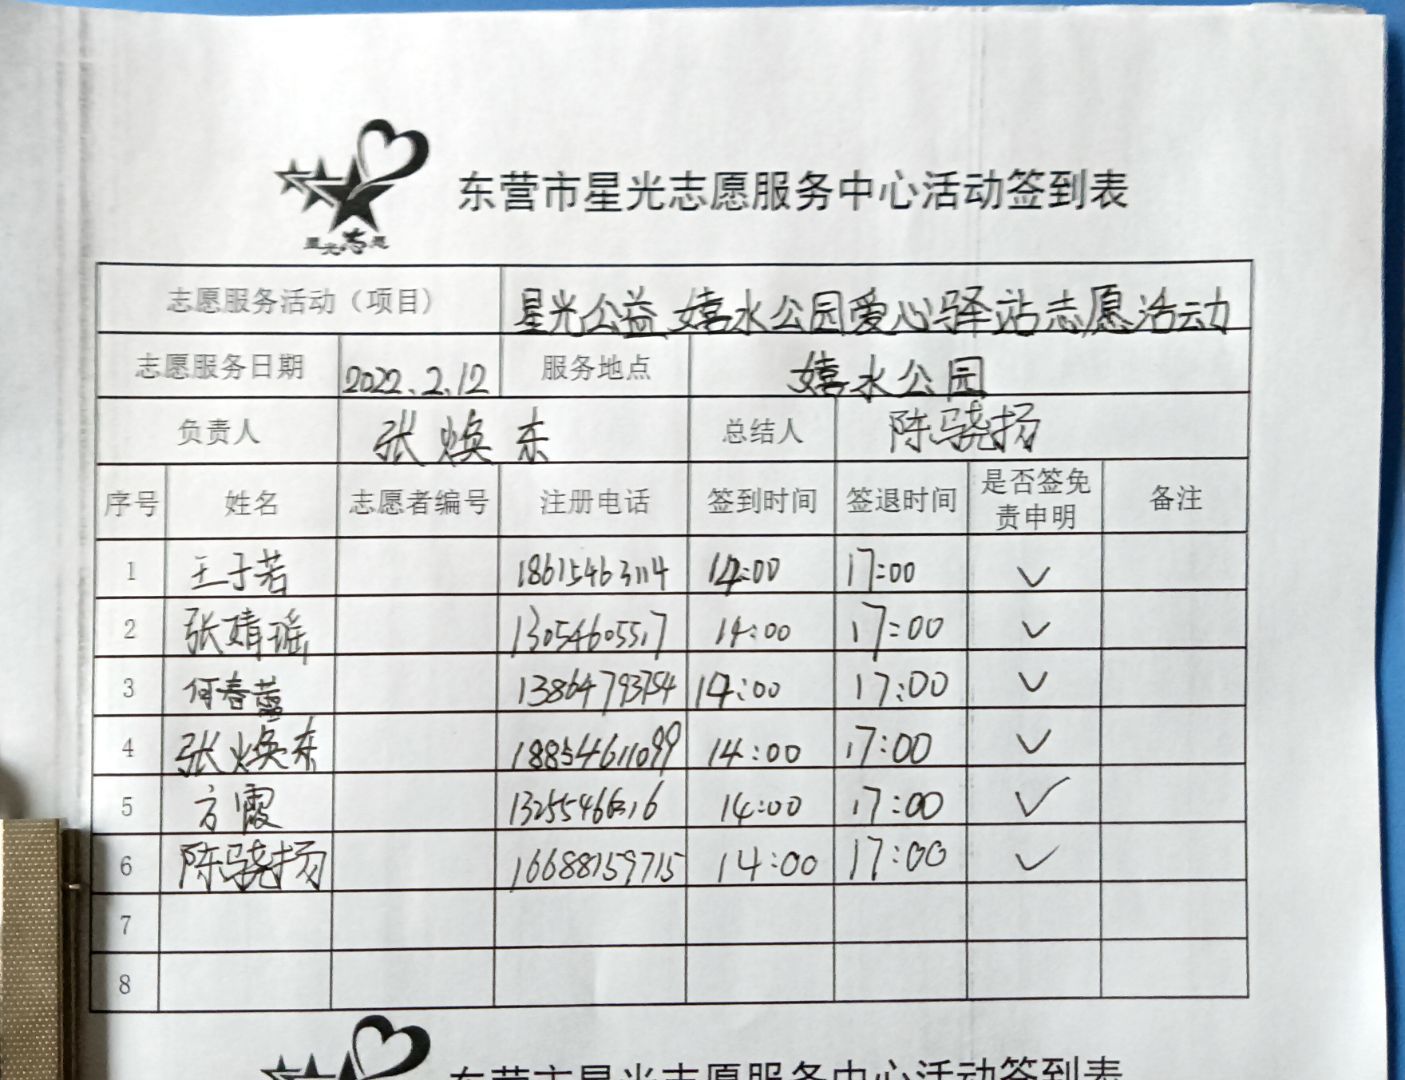 星光志愿
东营市星光志愿服务中心活动签到表
志愿服务活动（项目） 星光公益 嬉水公园爱心驿站志愿活动
志愿服务日期 2022.2.12 服务地点 嬉水公园
负责人 张焕东 总结人 陈骁扬
序号 姓名 志愿者编号 注册电话 签到时间 签退时间 是否签免责申明 备注
1 王子若 18615463114 14:00 17:00 ✓
2 张婧瑶 13054605517 14:00 17:00 ✓
3 何春 13864793754 14:00 17:00 ✓
4 张焕东 18854611099 14:00 17:00 ✓
5 方霞 14:00 17:00 ✓
6 陈骁扬 16688159715 14:00 17:00 ✓
7
8
东营市星光志愿服务中心活动签到表